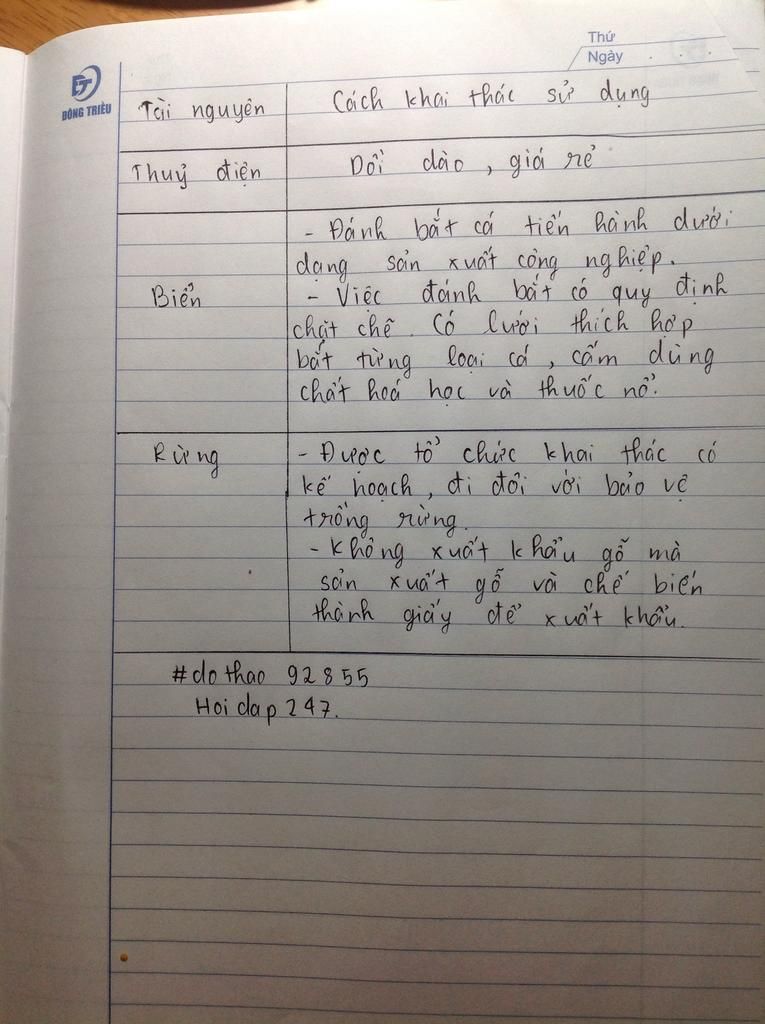 Thứ
Ngày
ĐT
ĐÔNG TRIỀU
Tài nguyên
Cách khai thác sử dụng
Thuỷ điện
Dồi dào, giá rẻ
Biển
- Đánh bắt cá tiến hành dưới
dạng sản xuất công nghiệp.
- Việc đánh bắt có quy định
chặt chẽ. Có lưới thích hợp
bắt từng loại cá, cấm dùng
chất hoá học và thuốc nổ.
Rừng
- Được tổ chức khai thác có
kế hoạch, đi đôi với bảo vệ
trồng rừng.
- Không xuất khẩu gỗ mà
sản xuất gỗ và chế biến
thành giấy để xuất khẩu.
#do thao 92855
Hoi dap 247.